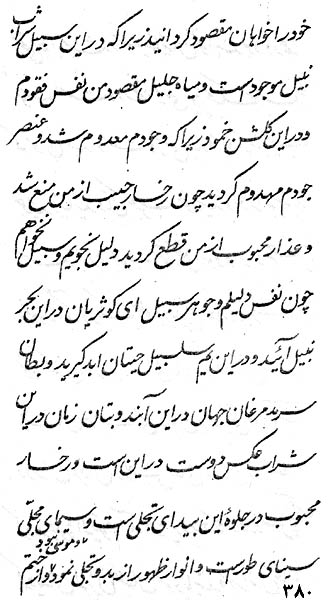 خود را خواهان مقصود گردانید زیرا که در این سبیل شراب
نبیل موجود است و میاه جلیل مقصود من نفس فقودم
و در این گلشن خمود زیرا که وجودم معدوم شد و عنصر
جودم مهدوم گردید چون رخسار حبیب از من منع شد
و عذار محبوب از من قطع گردید دلیل نجویم و سبیل نخواهم
چون نفس دلیلم و جوهر سبیل ای کوثریان در این بحر
نبیل آئید و در این یم سلسبیل حیتان ابد گیرید و بطان
سرمد مرغان جهان در این آبند و بتان زمان در این
شراب عکس دوست در این است و رخسار
محبوب در جلوهٔ این بیدای تجلی است و سیمای مجلّی
سینای طور است و انوار ظهور از ید و تجلی نمود و از ختم
و موسی نبود
۳۸۰